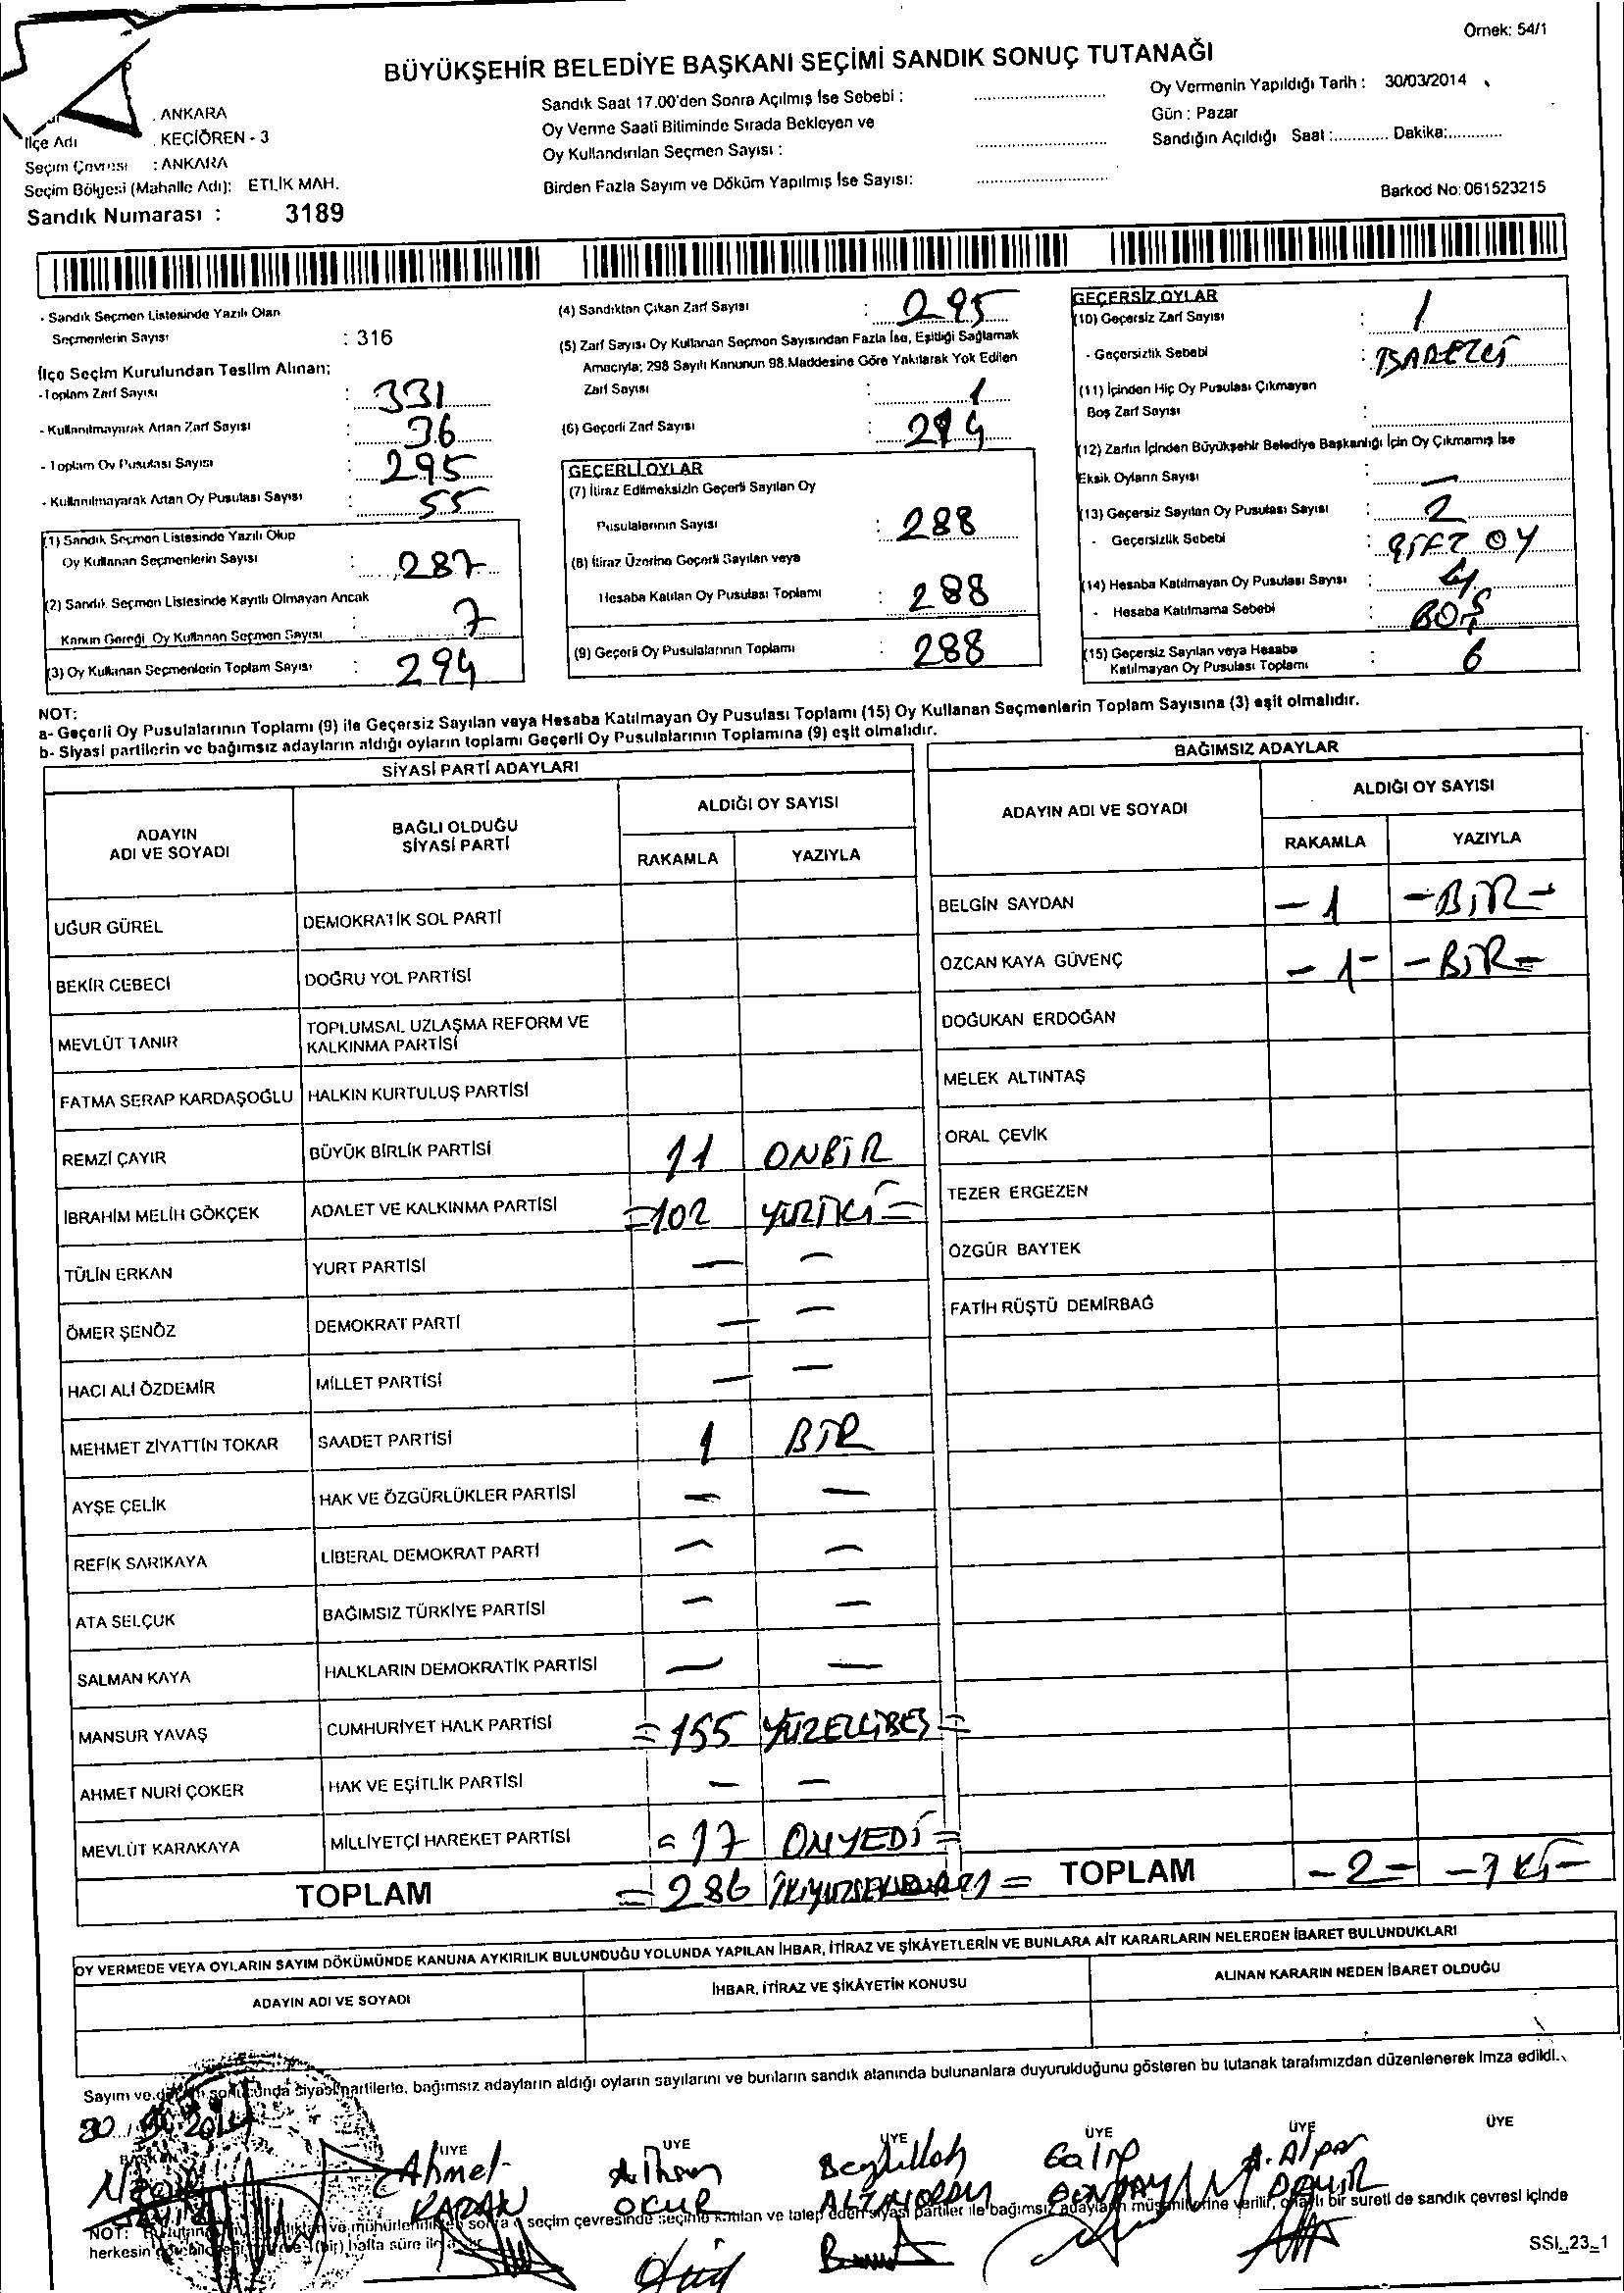 Örnek: 54/1
BÜYÜKŞEHİR BELEDİYE BAŞKANI SEÇİMİ SANDIK SONUÇ TUTANAĞI
ANKARA
İlçe Adı . KEÇİÖREN - 3
Seçim Çevresi : ANKARA
Seçim Bölgesi (Mahalle Adı): ETLİK MAH.
Sandık Numarası : 3189
Sandık Saat 17.00'den Sonra Açılmış İse Sebebi :
Oy Verme Saati Bitiminde Sırada Bekleyen ve
Oy Kullandırılan Seçmen Sayısı :
Birden Fazla Sayım ve Döküm Yapılmış İse Sayısı:
Oy Vermenin Yapıldığı Tarih : 30/03/2014
Gün : Pazar
Sandığın Açıldığı Saat :............ Dakika:............
Barkod No: 061523215
- Sandık Seçmen Listesinde Yazılı Olan
Seçmenlerin Sayısı : 316
İlçe Seçim Kurulundan Teslim Alınan;
- Toplam Zarf Sayısı : 331
- Kullanılmayarak Artan Zarf Sayısı : 36
- Toplam Oy Pusulası Sayısı : 295
- Kullanılmayarak Artan Oy Pusulası Sayısı : 55
(1) Sandık Seçmen Listesinde Yazılı Olup
Oy Kullanan Seçmenlerin Sayısı : 287
(2) Sandık Seçmen Listesinde Kayıtlı Olmayan Ancak
Kanun Gereği Oy Kullanan Seçmen Sayısı : 7
(3) Oy Kullanan Seçmenlerin Toplam Sayısı : 294
(4) Sandıktan Çıkan Zarf Sayısı : 295
(5) Zarf Sayısı Oy Kullanan Seçmen Sayısından Fazla İse, Eşitliği Sağlamak
Amacıyla; 298 Sayılı Kanunun 98.Maddesine Göre Yakılarak Yok Edilen
Zarf Sayısı : 1
(6) Geçerli Zarf Sayısı : 294
GEÇERLİ OYLAR
(7) İtiraz Edilmeksizin Geçerli Sayılan Oy
Pusulalarının Sayısı : 288
(8) İtiraz Üzerine Geçerli Sayılan veya
Hesaba Katılan Oy Pusulası Toplamı : 288
(9) Geçerli Oy Pusulalarının Toplamı : 288
GEÇERSİZ OYLAR
(10) Geçersiz Zarf Sayısı : 1
- Geçersizlik Sebebi :
(11) İçinden Hiç Oy Pusulası Çıkmayan
Boş Zarf Sayısı :
(12) Zarfın İçinden Büyükşehir Belediye Başkanlığı İçin Oy Çıkmamış İse
Eksik Oyların Sayısı : —
(13) Geçersiz Sayılan Oy Pusulası Sayısı : 2
- Geçersizlik Sebebi : ÇİFT OY
(14) Hesaba Katılmayan Oy Pusulası Sayısı : 4
- Hesaba Katılmama Sebebi : BOŞ
(15) Geçersiz Sayılan veya Hesaba
Katılmayan Oy Pusulası Toplamı : 6
NOT:
a- Geçerli Oy Pusulalarının Toplamı (9) ile Geçersiz Sayılan veya Hesaba Katılmayan Oy Pusulası Toplamı (15) Oy Kullanan Seçmenlerin Toplam Sayısına (3) eşit olmalıdır.
b- Siyasi partilerin ve bağımsız adayların aldığı oyların toplamı Geçerli Oy Pusulalarının Toplamına (9) eşit olmalıdır.
SİYASİ PARTİ ADAYLARI
ADAYIN ADI VE SOYADI
BAĞLI OLDUĞU SİYASİ PARTİ
ALDIĞI OY SAYISI
RAKAMLA YAZIYLA
UĞUR GÜREL DEMOKRATİK SOL PARTİ
BEKİR CEBECİ DOĞRU YOL PARTİSİ
MEVLÜT TANIR TOPLUMSAL UZLAŞMA REFORM VE KALKINMA PARTİSİ
FATMA SERAP KARDAŞOĞLU HALKIN KURTULUŞ PARTİSİ
REMZİ ÇAYIR BÜYÜK BİRLİK PARTİSİ 11 ONBİR
İBRAHİM MELİH GÖKÇEK ADALET VE KALKINMA PARTİSİ =102 YÜZİKİ=
TÜLİN ERKAN YURT PARTİSİ — —
ÖMER ŞENÖZ DEMOKRAT PARTİ — —
HACI ALİ ÖZDEMİR MİLLET PARTİSİ — —
MEHMET ZİYATTİN TOKAR SAADET PARTİSİ 1 BİR
AYŞE ÇELİK HAK VE ÖZGÜRLÜKLER PARTİSİ — —
REFİK SARIKAYA LİBERAL DEMOKRAT PARTİ — —
ATA SELÇUK BAĞIMSIZ TÜRKİYE PARTİSİ — —
SALMAN KAYA HALKLARIN DEMOKRATİK PARTİSİ — —
MANSUR YAVAŞ CUMHURİYET HALK PARTİSİ =155 YÜZELLİBEŞ=
AHMET NURİ ÇOKER HAK VE EŞİTLİK PARTİSİ — —
MEVLÜT KARAKAYA MİLLİYETÇİ HAREKET PARTİSİ =17 ONYEDİ=
TOPLAM =286 İKİYÜZSEKSENALTI=
BAĞIMSIZ ADAYLAR
ADAYIN ADI VE SOYADI
ALDIĞI OY SAYISI
RAKAMLA YAZIYLA
BELGİN SAYDAN -1 -BİR-
ÖZCAN KAYA GÜVENÇ -1- -BİR-
DOĞUKAN ERDOĞAN
MELEK ALTINTAŞ
ORAL ÇEVİK
TEZER ERGEZEN
ÖZGÜR BAYTEK
FATİH RÜŞTÜ DEMİRBAĞ
TOPLAM -2- -İKİ-
OY VERMEDE VEYA OYLARIN SAYIM DÖKÜMÜNDE KANUNA AYKIRILIK BULUNDUĞU YOLUNDA YAPILAN İHBAR, İTİRAZ VE ŞİKÂYETLERİN VE BUNLARA AİT KARARLARIN NELERDEN İBARET BULUNDUKLARI
ADAYIN ADI VE SOYADI
İHBAR, İTİRAZ VE ŞİKÂYETİN KONUSU
ALINAN KARARIN NEDEN İBARET OLDUĞU
Sayım ve döküm sonucunda siyasi partilerle, bağımsız adayların aldığı oyların sayılarını ve bunların sandık alanında bulunanlara duyurulduğunu gösteren bu tutanak tarafımızdan düzenlenerek imza edildi.
ÜYE ÜYE ÜYE ÜYE ÜYE ÜYE
Ahmet Beytullah Galip A. Alpar
OKUR
seçim çevresinde seçime katılan ve talep eden siyasi partiler ile bağımsız adayların müşahitlerine verilir, onaylı bir sureti de sandık çevresi içinde
herkesin (bir) hafta süre ile
SSI_23_1